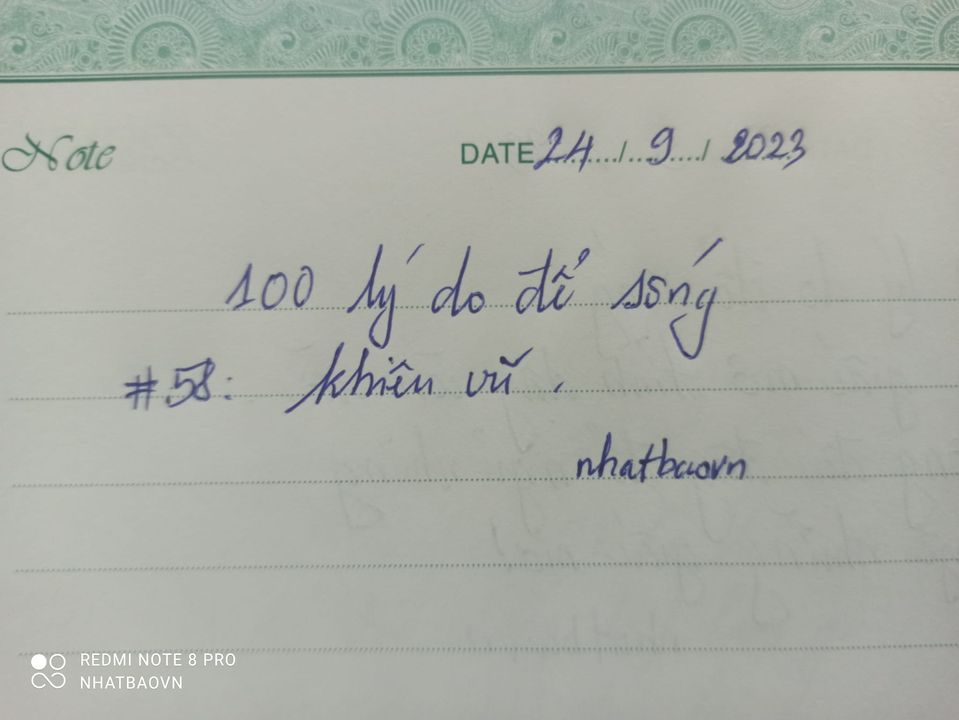 Note
DATE 24/9/2023
100 lý do để sống
#58: khiêu vũ.
nhatbaovn
REDMI NOTE 8 PRO
NHATBAOVN